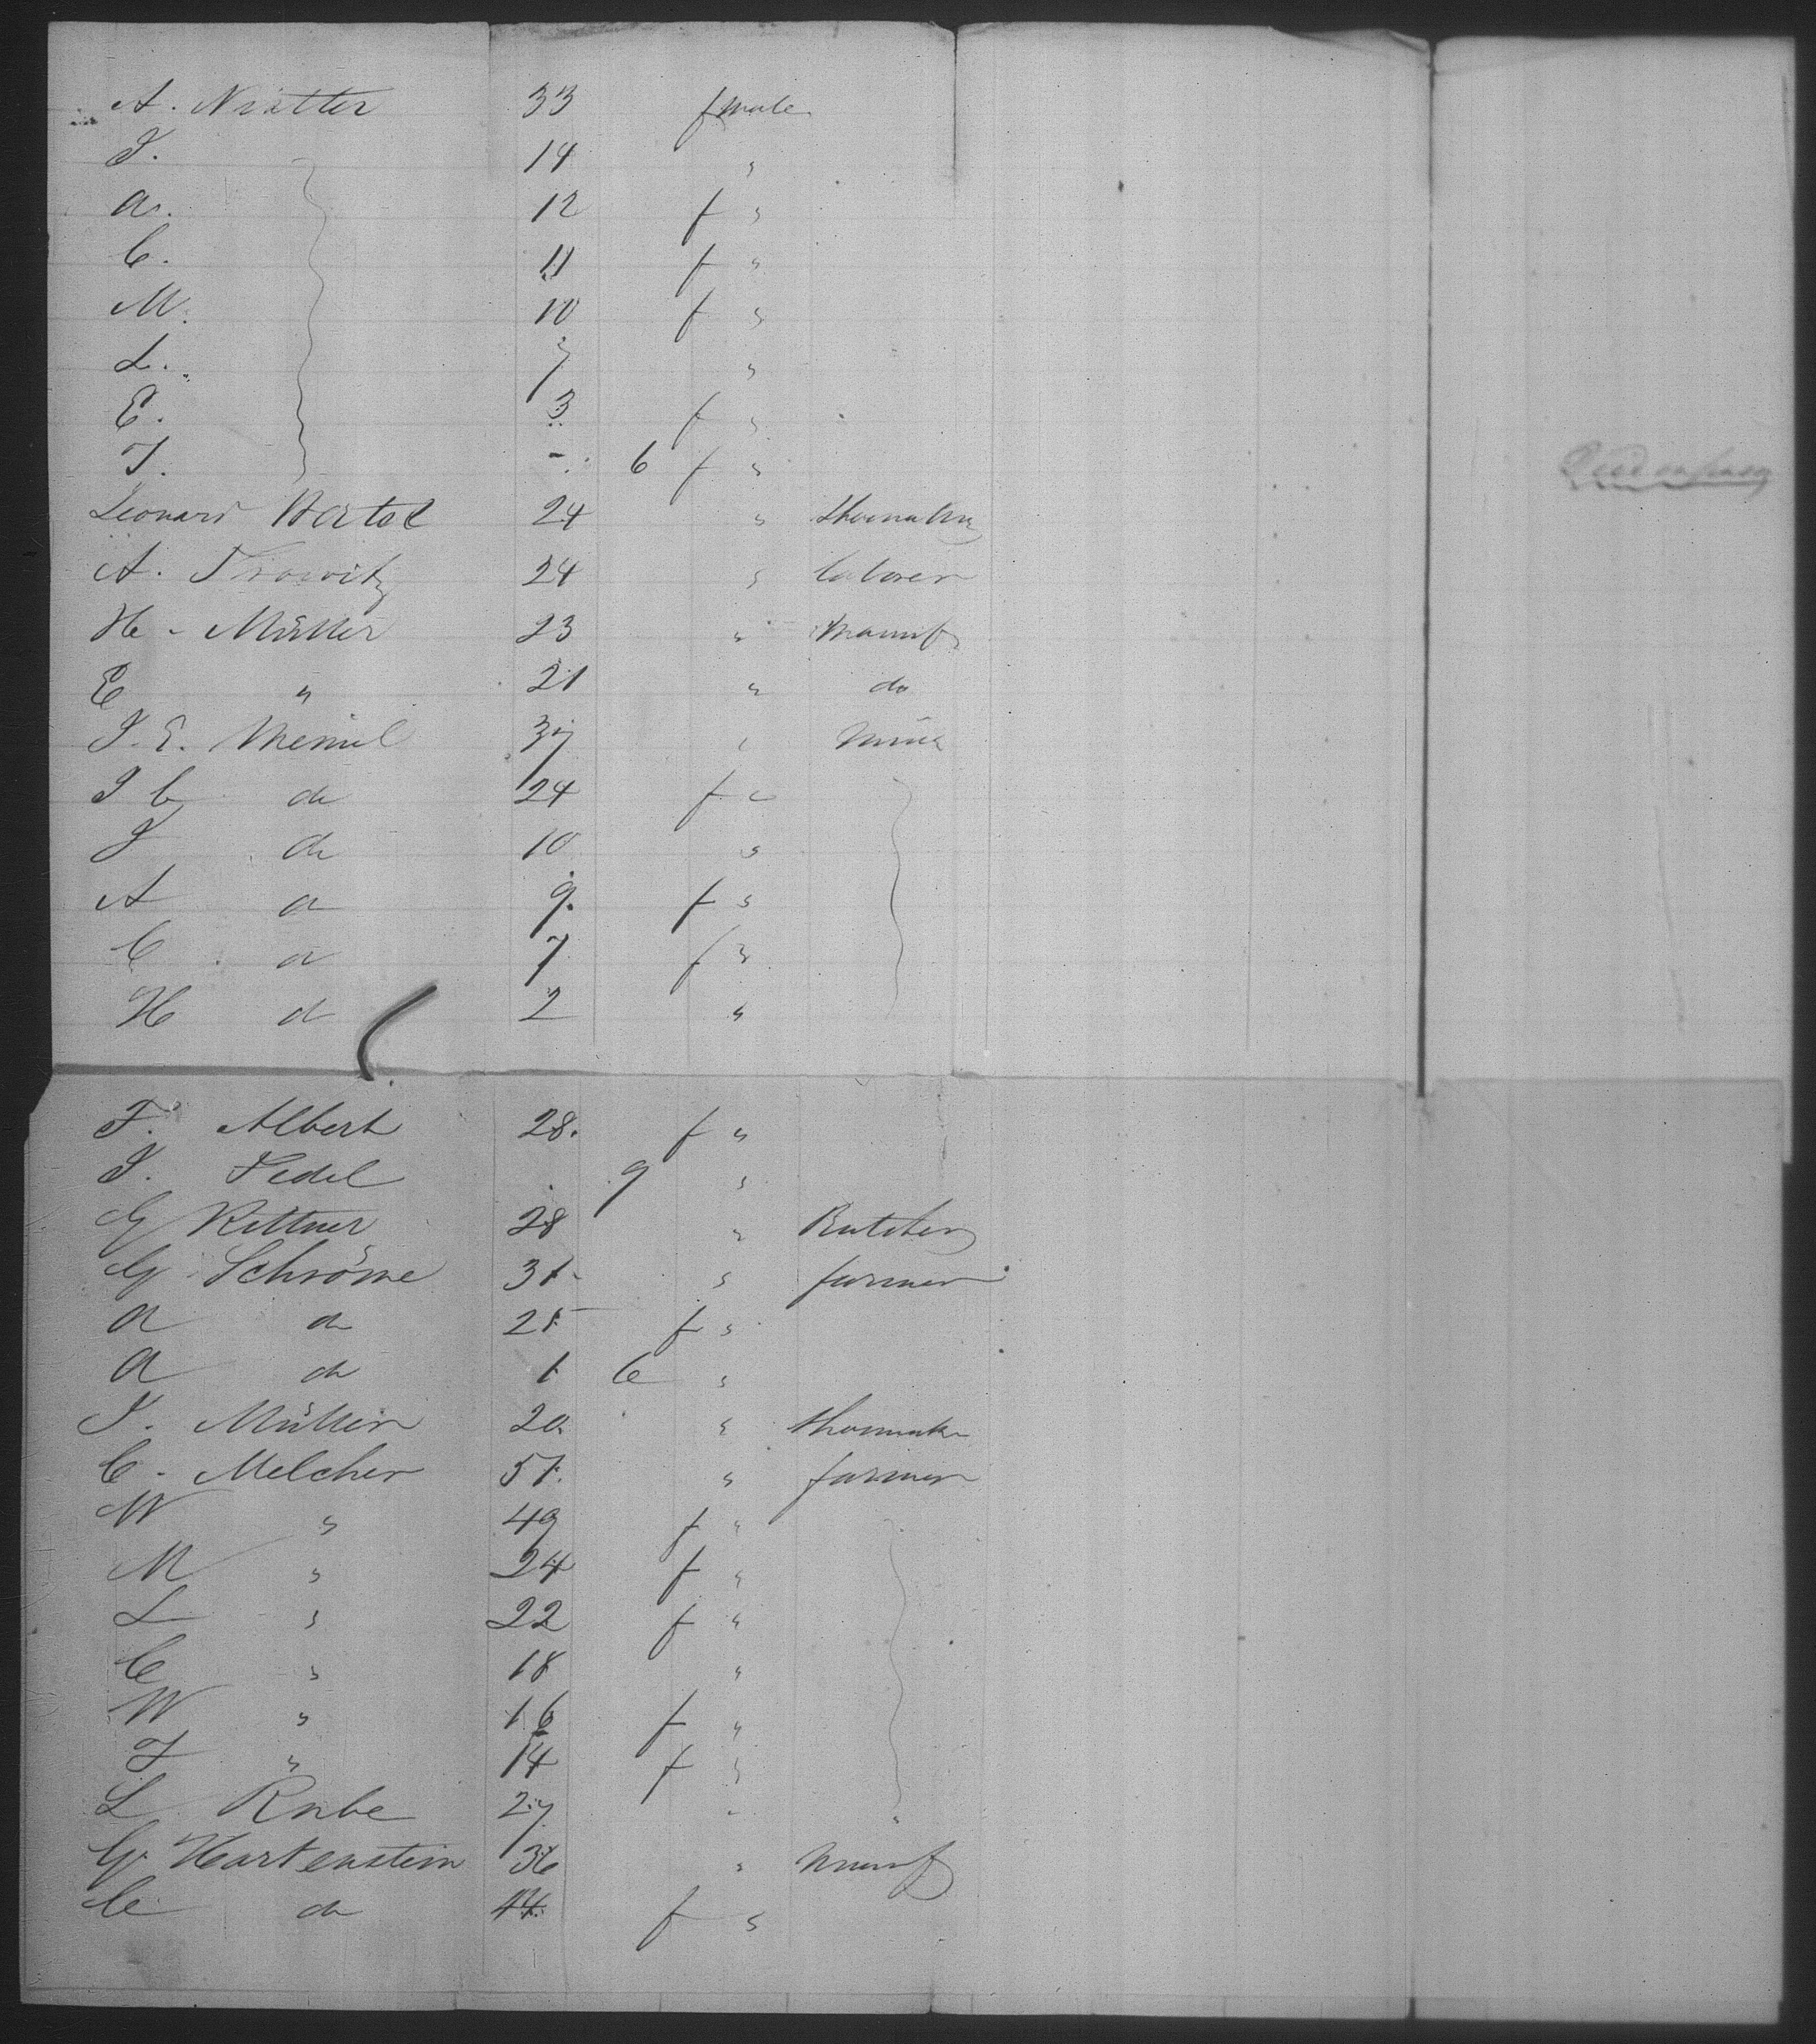 A. 33 fmale
J. 14 "
A. 12 f "
C. 11 f "
M. 10 f "
L. 7 "
E. 3 f "
J. - 6 f "
Leonard Hertel 24 " Shoemaker
A. 24 " laborer
H. Müller 23 " Manuf
E " 21 " do
J. E. 37 "
J C do 24 f "
J do 10 "
A do 9 f "
C do 7 f "
H d 2 "
F. Albert 28. f "
J. Fedel 9 "
G Kettner 28 " Butcher
G Schröme 31 " farmer
A do 25 f "
A do 1 6 "
J. Müller 20 " Shoemaker
C. Melcher 51. " farmer
W " 49 f "
M " 24 f "
L " 22 f "
C " 18 "
W " 16 f "
F " 14 f "
L Rabe 27 " "
G Hartenstein 36 " Manuf
C do 44 f "